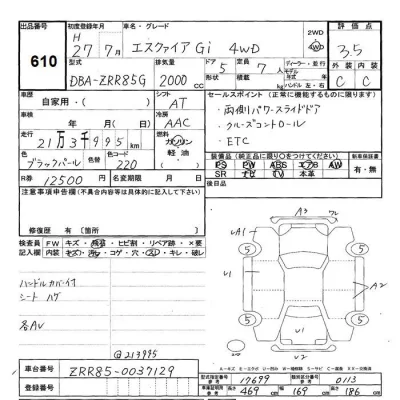 出品番号
610
初度登録年月
H 27年 7月
車名・グレード
エスクァイア Gi 4WD
2WD
4WD
評価点
3.5
型式
DBA-ZRR85G
排気量
2000 cc
ドア 5
形状
定員 7 人
積載 kg
ディーラー・並行
モデル 年
ハンドル 左・右
外装 内装
C C
車歴
自家用・( )
シフト
AT
車検 年 月
冷房
AAC
走行
21万3千995 km
燃料
ガソリン
軽油
( )
色
ブラックパール
色替
カラーNo
220
R券
12500
名変期限 月 日
セールスポイント (正常に機能するものに限ります)
・両側パワースライドドア
・クルーズコントロール
・ETC
装備品 (純正品に限り○をつけてください)
PS PW ABS エアB AW
SR ナビ TV 本革
新車保証書
有・無
後日品
注意事項申告欄 (不具合内容等は具体的に記入して下さい)
修復歴 有( )箇所
検査員記入欄
FW キズ・飛石・ヒビ割・リペア跡・×要
内装 キズ・汚レ・コゲ・穴・スレ・キレ・破レ
ハンドルカバー付
シート ハゲ
各AU
@213995
A3
UA1
5 5
U1 U1
A2
5 5
U2
車台番号
ZRR85-0037129
登録番号
型式指定番号 参考
17699
類別区分番号 参考
0113
長さ 469 cm
幅 169 cm
高さ 186 cm